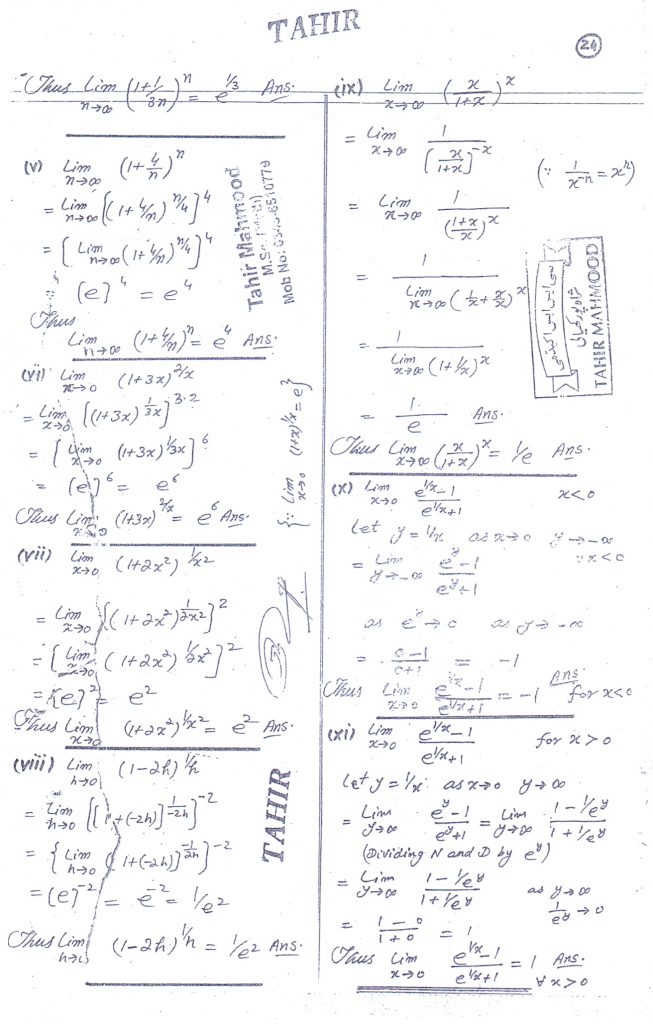 TAHIR
24
Thus Lim n→∞ (1+1/3n)^n = e^1/3 Ans.
(v) Lim n→∞ (1+4/n)^n
= Lim n→∞ [(1+4/n)^n/4]^4
= [Lim n→∞ (1+4/n)^n/4]^4
= (e)^4 = e^4
Thus
Lim n→∞ (1+4/n)^n = e^4 Ans.
(vi) Lim x→0 (1+3x)^2/x
= Lim x→0 [(1+3x)^1/3x]^3·2
= [Lim x→0 (1+3x)^1/3x]^6
= (e)^6 = e^6
Thus Lim x→0 (1+3x)^2/x = e^6 Ans.
{∵ Lim x→0 (1+x)^1/x = e}
(vii) Lim x→0 (1+2x²)^1/x²
= Lim x→0 [(1+2x²)^1/2x²]^2
= [Lim x→0 (1+2x²)^1/2x²]^2
= [e]^2 = e^2
Thus Lim x→0 (1+2x²)^1/x² = e^2 Ans.
(viii) Lim h→0 (1-2h)^1/h
= Lim h→0 [[1+(-2h)]^1/-2h]^-2
= {Lim h→0 [1+(-2h)]^-1/2h}^-2
= (e)^-2 = e^-2 = 1/e²
Thus Lim h→0 (1-2h)^1/h = 1/e² Ans.
Tahir Mahmood
M.Sc.
Mob No:
TAHIR
(ix) Lim x→∞ (x/1+x)^x
= Lim x→∞ 1/(x/1+x)^-x (∵ 1/x^-n = x^n)
= Lim x→∞ 1/(1+x/x)^x
= 1/Lim x→∞ (1/x+x/x)^x
= 1/Lim x→∞ (1+1/x)^x
= 1/e Ans.
Thus Lim x→∞ (x/1+x)^x = 1/e Ans.
TAHIR MAHMOOD
(x) Lim x→0 e^1/x-1/e^1/x+1 x<0
Let y = 1/x as x→0 y→-∞
∵ x<0
= Lim y→-∞ e^y-1/e^y+1
as e^y→0 as y→-∞
= 0-1/0+1 = -1
Thus Lim x→0 e^1/x-1/e^1/x+1 = -1 Ans for x<0
(xi) Lim x→0 e^1/x-1/e^1/x+1 for x>0
Let y = 1/x as x→0 y→∞
= Lim y→∞ e^y-1/e^y+1 = Lim y→∞ 1-1/e^y/1+1/e^y
(Dividing N and D by e^y)
= Lim y→∞ 1-1/e^y/1+1/e^y as y→∞
1/e^y→0
= 1-0/1+0 = 1
Thus Lim x→0 e^1/x-1/e^1/x+1 = 1 Ans.
∀ x>0